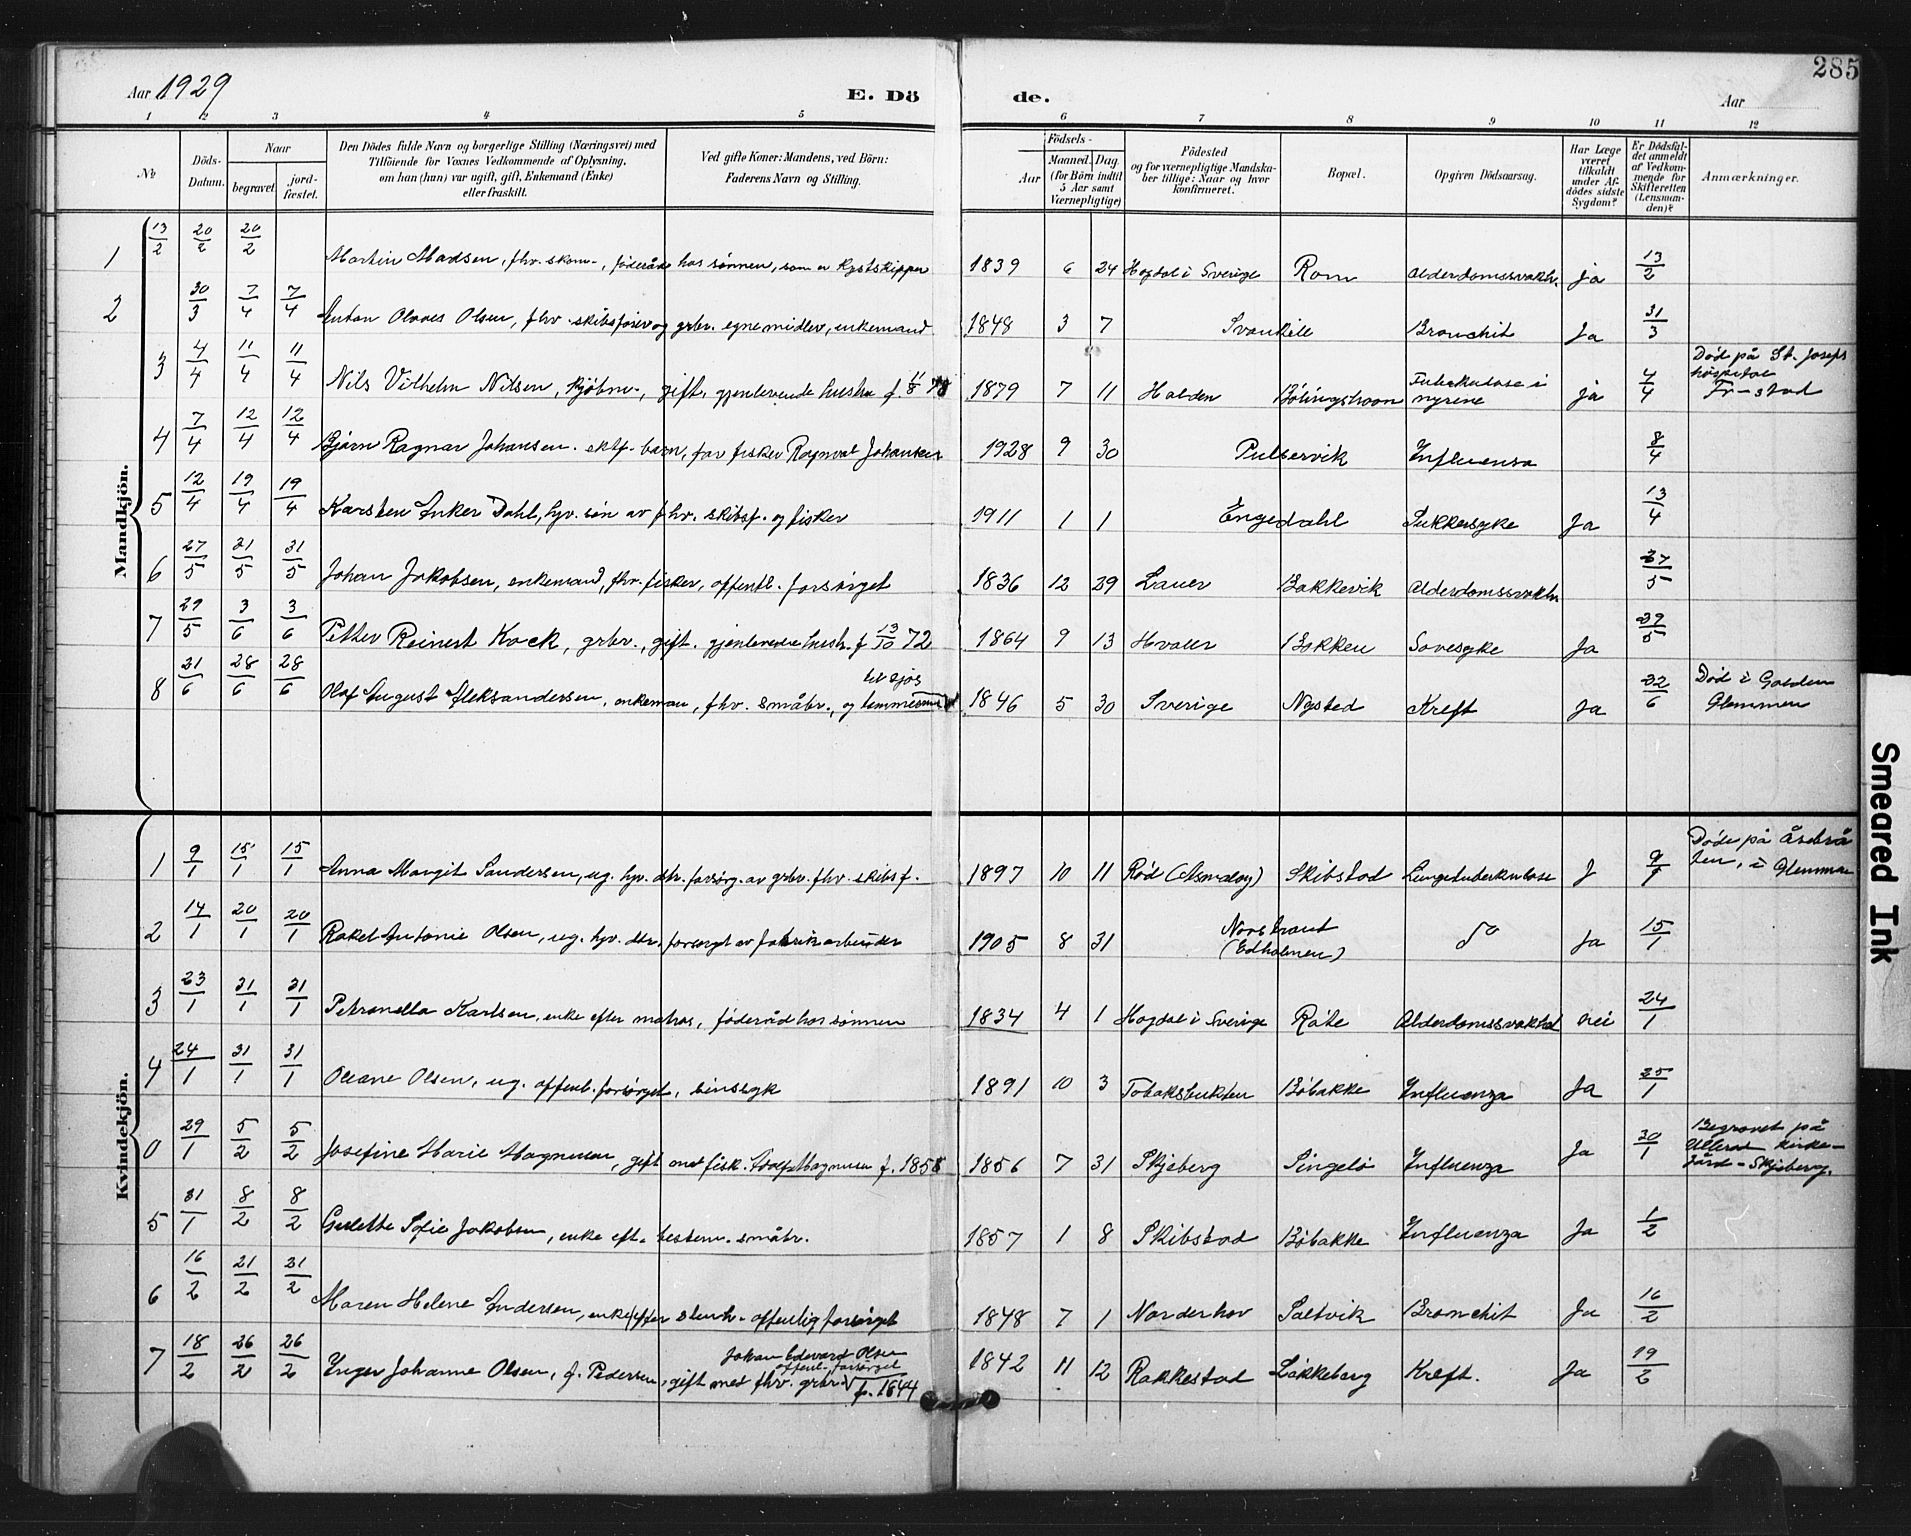 285
Aar 1929
E. Dö de.
Aar
1 2 3 4 5 6 7 8 9 10 11 12
No
Döds-Datum.
Naar
begravet.
jordfæstet.
Den Dödes fulde Navn og borgerlige Stilling (Næringsvei) med
Tilföiende for Voxnes Vedkommende af Oplysning,
om han (hun) var ugift, gift, Enkemand (Enke)
eller fraskilt.
Ved gifte Koner: Mandens, ved Börn:
Faderens Navn og Stilling.
Födsels-
Aar
Maaned. Dag.
(for Börn indtil
5 Aar samt
Værnepligtige)
Födested
og for værnepligtige Mandska-
ber tillige: Naar og hvor
konfirmeret.
Bopæl.
Opgiven Dödsaarsag.
Har Læge
været
tilkaldt
under Af-
dödes sidste
Sygdom?
Er Dödsfal-
det anmeldt
af Vedkom-
mende for
Skifteretten
(Lensman-
den)?
Anmærkninger.
Mandkjön.
1 13/2 20/2 20/2 Martin Madsen, fhv. skom-, föderåd hos sönnen, som er kystskipper 1839 6 24 Hogdal i Sverige Rom Alderdomssvakh. ja 13/2
2 30/3 7/4 7/4 Anton Olaves Olsen, fhv. skibsförer og grbr. egne midler, enkemand. 1848 3 7 Svankile Bronchit Ja 31/3
3 4/4 11/4 11/4 Nils Vilhelm Nilsen, kjöbm-, gift, gjenlevende hustru f. 11/8 78 1879 7 11 Halden Bölingshavn Tuberkulose i nyrene ja 4/4 Död på St. Josephs hospital Fr-stad
4 7/4 12/4 12/4 Bjarn Ragnar Johansen. ektf. barn, far fisker Ragnval Johansen 1928 9 30 Pulservik Influensa 8/4
5 12/4 19/4 19/4 Karsten Anker Dahl, hjv. sön av fhv. skibsf. og fisker 1911 1 1 Engedahl Sukkersyke Ja 13/4
6 27/5 31/5 31/5 Johan Jakobsen, enkemand, fhv. fisker, offentl. forsörget 1836 12 29 Lauer Bakkevik Alderdomssvakh 27/5
7 29/5 3/6 3/6 Petter Reinert Kock, grbr., gift. gjenlevende hustr. f. 13/10 72 1864 9 13 Hvaler Bakken Sovesyke Ja 29/5
til sjös
8 21/6 28/6 28/6 Olaf August Aleksandersen, enkeman, fhv. småbr., og tømmermand 1846 5 30 Sverige Nysted Kreft Ja 22/6 Död i Gaden Glemmen
Kvindekjön.
1 9/1 15/1 15/1 Anna Margit Sandersen, ug. hjv. dtr. forsörg. av grbr. fhv. skibsf. 1897 10 11 Röd (Asmaløy) Skibstad Lungetuberkulose J 9/1 Döde på Åsebråten, i Glemmen
2 14/1 20/1 20/1 Rakel Antonie Olsen, ug. hjv. dtr. forsörget av fabrikarbeider 1905 8 31 Norstrand (Edholmen) do Ja 15/1
3 23/1 31/1 31/1 Petronella Karlsen, enke efter matros, föderåd hos sönnen 1834 4 1 Hogdal i Sverige Röte Alderdomssvakhet nei 24/1
4 24/1 31/1 31/1 Oleane Olsen, ug. offentl. forsörget, sinssyk 1891 10 3 Tobaksbukten Böbakke Influenza Ja 25/1
0 29/1 5/2 5/2 Josefine Marie Magnussen, gift med fisk. Adolf Magnusen f. 1858 1856 7 31 Skjeberg Singelö Influenza Ja 30/1 Begravet på Ullerøi Kirkegård - Skjeberg.
5 31/1 8/2 8/2 Gulette Sofie Jakobsen, enke eft. bestem. småbr. 1857 1 8 Skibstad Böbakke Influenza Ja 1/2
6 16/2 21/2 21/2 Maren Helene Andersen, enke efter stenh. offentlig forsörget 1848 7 1 Norderhov Saltvik Bronchit Ja 16/2
Johan Edevard Olsen
offentl. forsörget
7 18/2 26/2 26/2 Inger Johanne Olsen, f. Pedersen, gift med fhv. grbr. f. 1844 1842 11 12 Rakkestad Løkkeberg Kreft. Ja 19/2
Smeared Ink